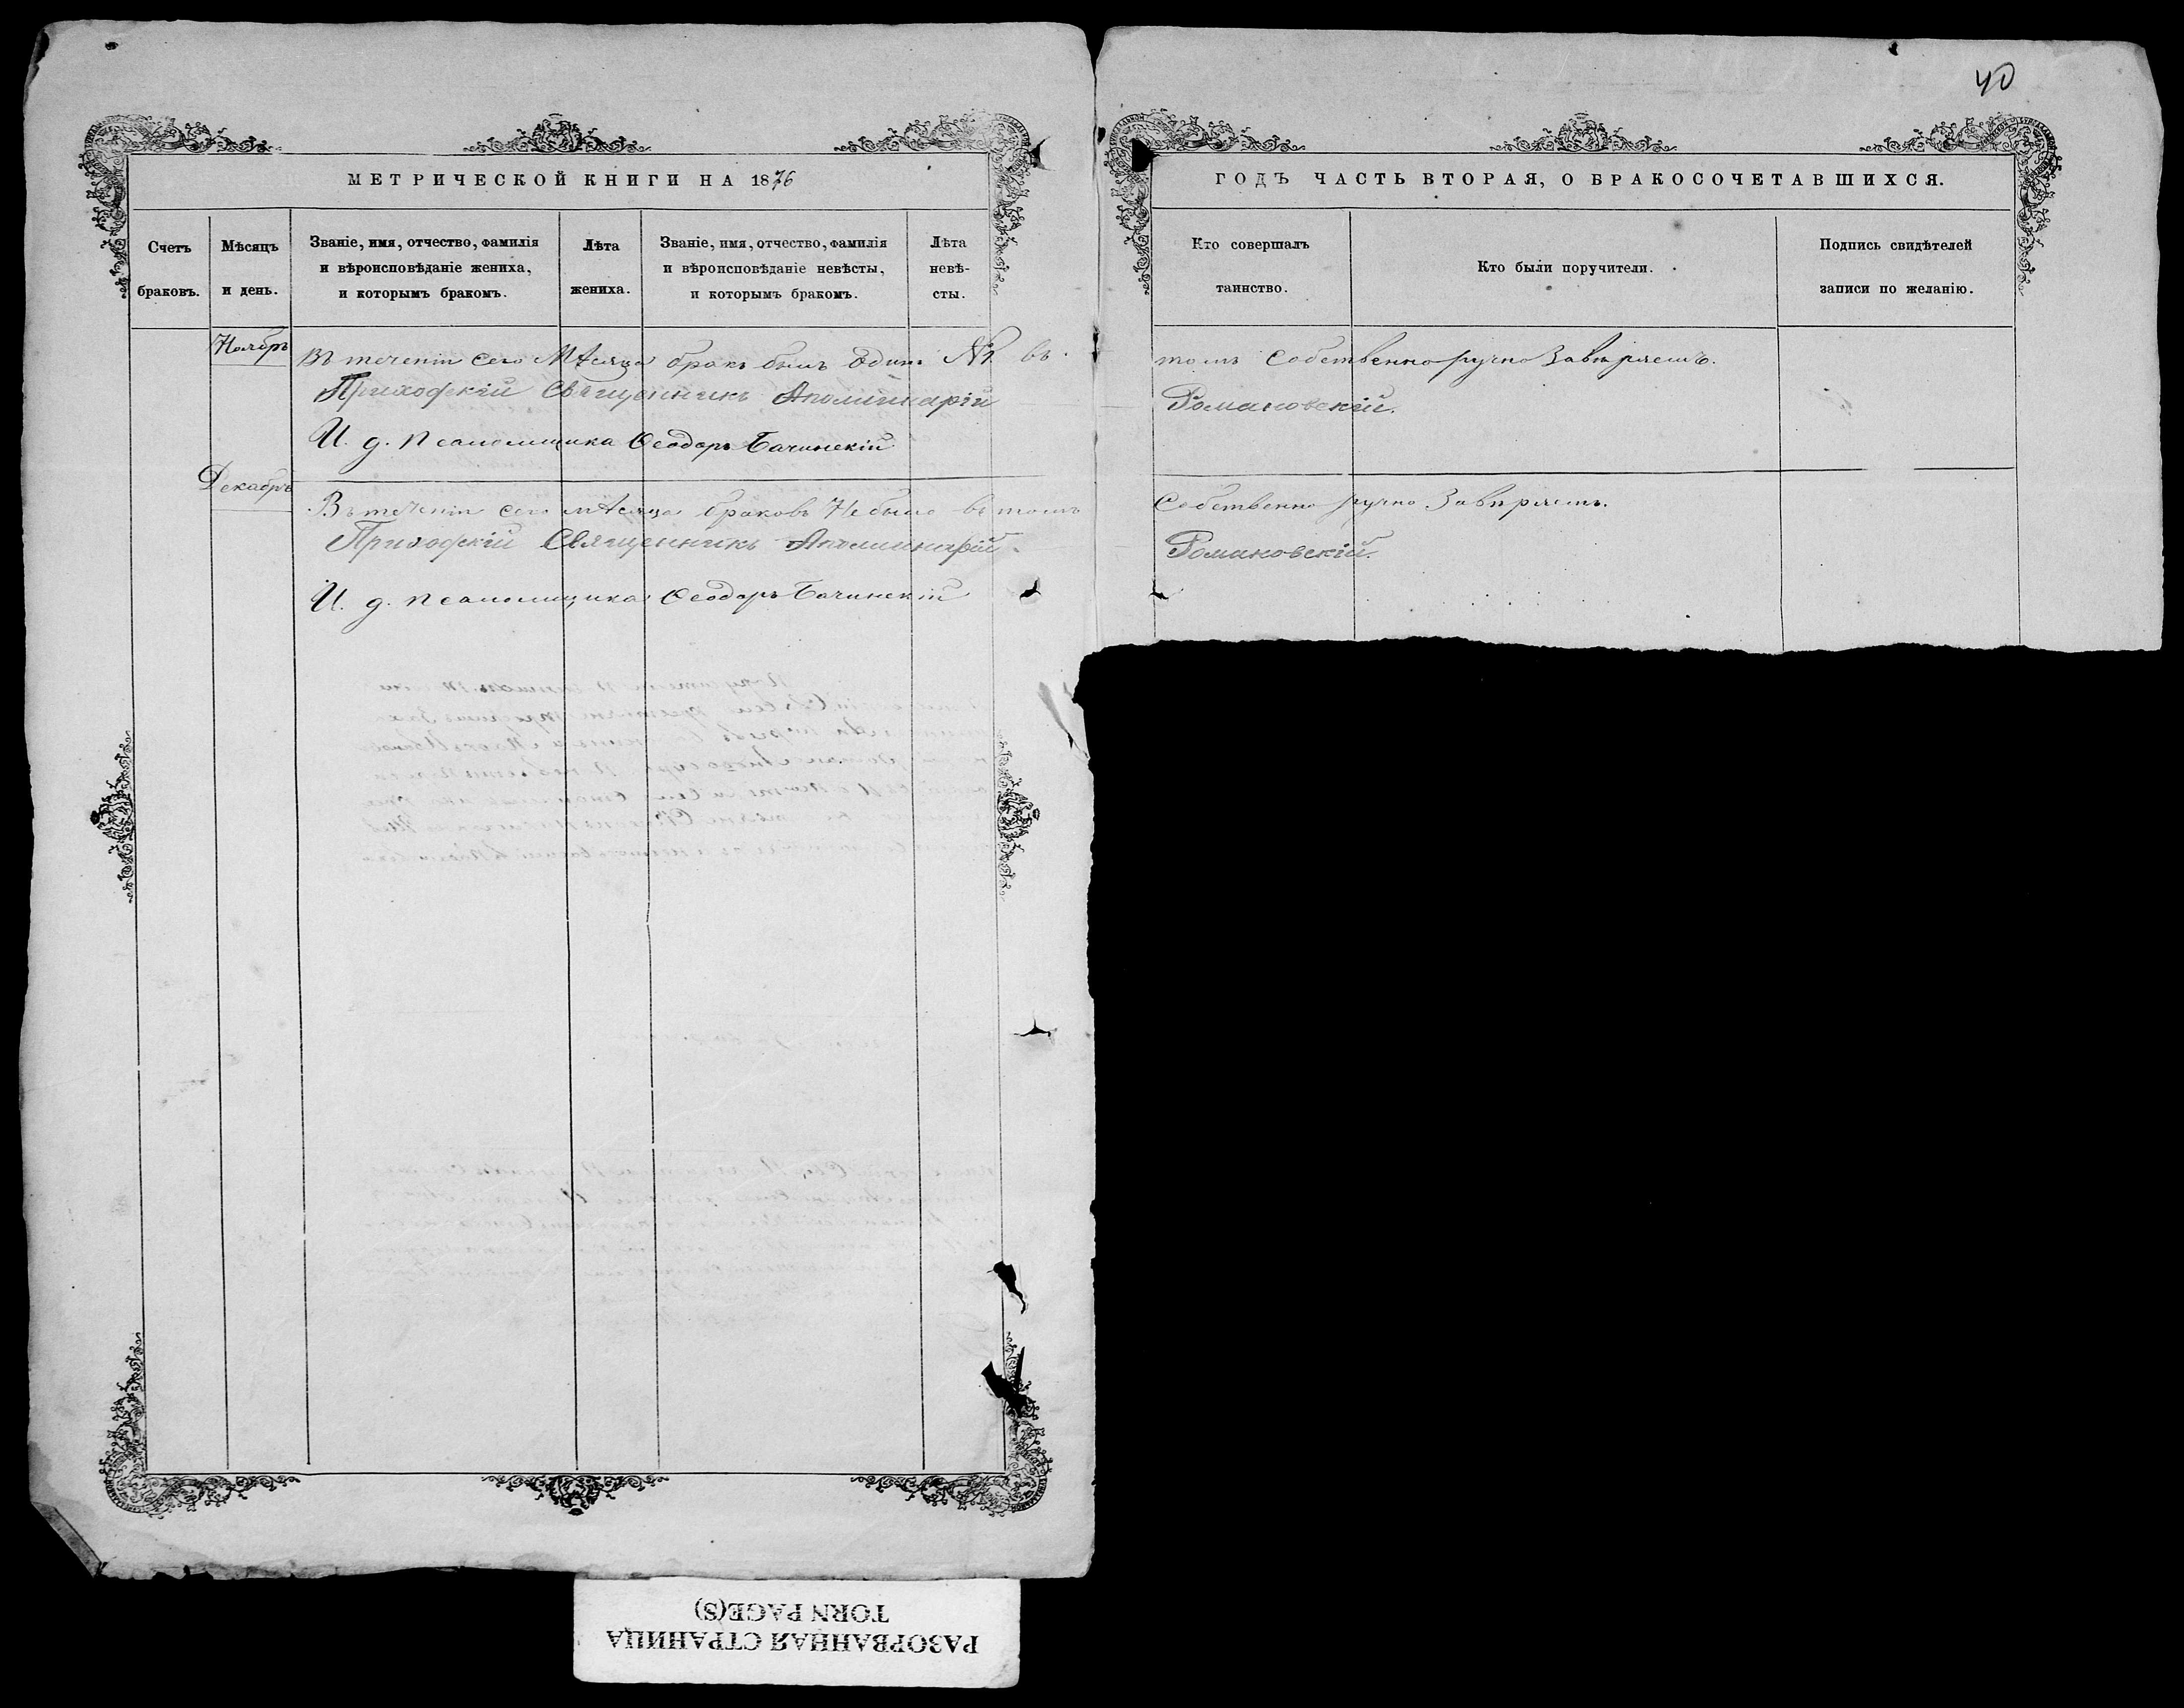 40
МЕТРИЧЕСКОЙ КНИГИ НА 1876
ГОДЪ ЧАСТЬ ВТОРАЯ, О БРАКОСОЧЕТАВШИХСЯ.
Счетъ браковъ.
Мѣсяцъ и день.
Званіе, имя, отчество, фамилія
и вѣроисповѣданіе жениха,
и которымъ бракомъ.
Лѣта жениха.
Званіе, имя, отчество, фамилія
и вѣроисповѣданіе невѣсты,
и которымъ бракомъ.
Лѣта
невѣ-
сты.
Кто совершалъ
таинство.
Кто были поручители.
Подпись свидѣтелей
записи по желанію.
Ноябрь
Въ теченіи сего Мѣсяца бракъ былъ Одинъ №1. въ томъ Собственноручно Завѣряемъ.
Приходскій Священникъ Аполинарій Романовскій.
И. д. псаломщика Ѳеодоръ Бачинскій
Декабрь
Въ теченіи сего мѣсяца браковъ Небыло въ томъ Собственно ручно Завѣряемъ.
Приходскій Священникъ Аполинарій Романовскій.
И. д. псаломщика Ѳеодоръ Бачинскій
РАЗОРВАННАЯ СТРАНИЦА
TORN PAGE(S)